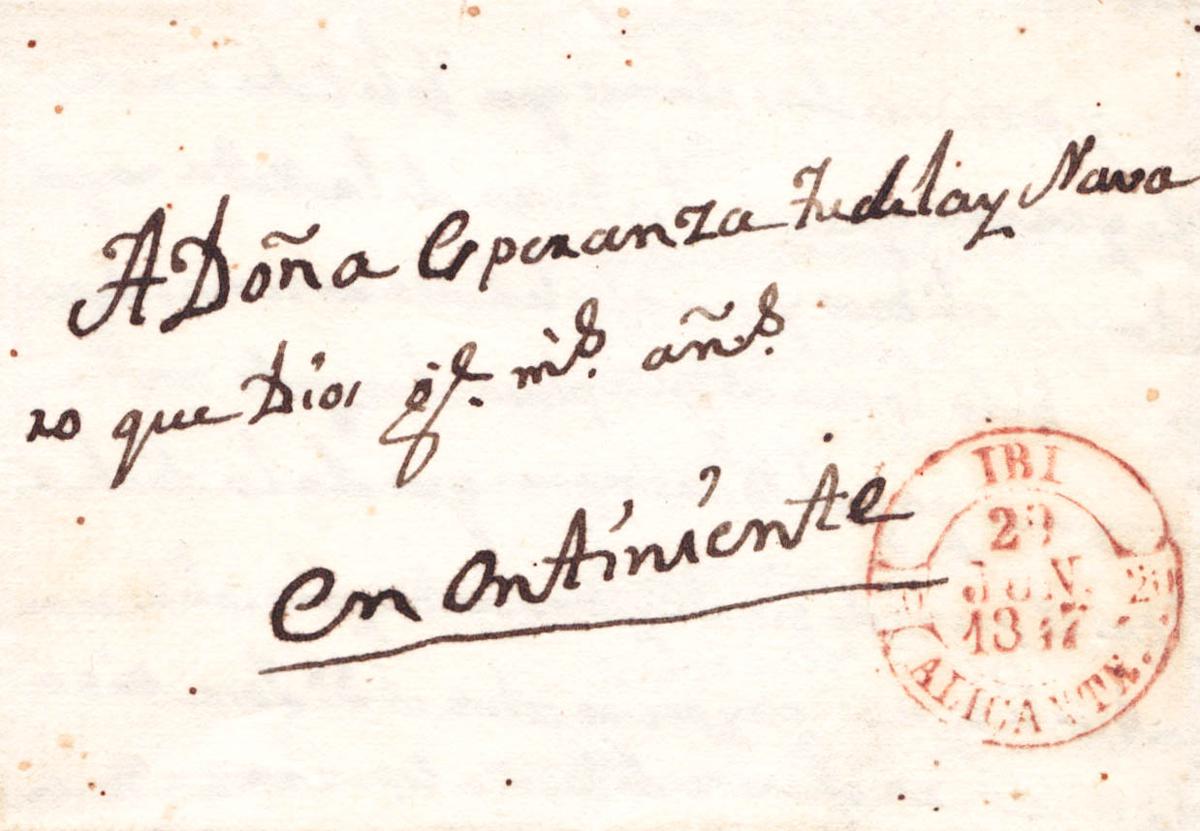 A Doña Esperanza Fudelay Nava
ro que Dios g.e m.s añ.s
en Onteniente
IBI
29
JUN.
1847
ALICANTE.